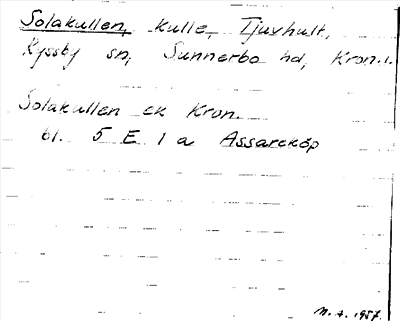 Solakullen, kulle, Tjuvhult,
Ryssby sn, Sunnerbo hd, Kron.l.
Solakullen ek Kron.
bl. 5 E 1 a Assarsköp
M. A. 1957.